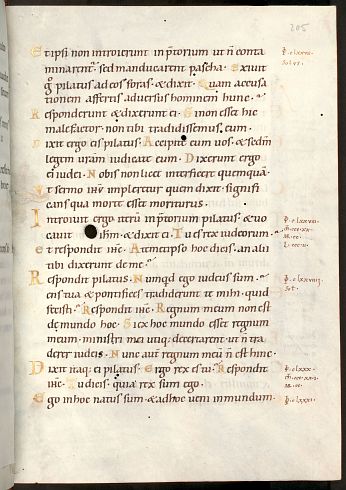 205
Et ipsi non introierunt in p̄torium ut n̄ conta
minarent͛. sed manducarent pascha. Exiuit
g̊ pilatus ad eos foras. & dixit. Quam accusa
tionem affertis aduersus hominem hunc.
Responderunt & dixerunt ei. Si non esset hic
malefactor. non tibi tradidissemus eum.
Dixit ergo eis pilatus. Accipite eum uos. & sedm̄
legem uram̄ iudicate eum. Dixerunt ergo
ei iudei. Nobis non licet interficere quemquā.
Ut sermo ihu̅ impleretur quem dixit. signifi
cans qua morte esset moriturus.
Introiuit ergo iterū in p̄torium pilatus. & uo
cauit ihm̅. & dixit ei. Tu es rex iudeorum.
et respondit ihc̅. A temetipso hoc dicis. an alii
tibi dixerunt de me.
Respondit pilatus. Numqd ego iudeus sum.
Gens tua & pontifices tradiderunt te mihi. quid
fecisti. Respondit ihc̅. Regnum meum non est
de mundo hoc. Si ex hoc mundo esset regnum
meum. ministri mei utiq; decertarent ut n̄ tra
derer iudeis. Nunc aut̄ regnum meū n̄ est hinc.
Dixit itaq; ei pilatus. Ergo rex es tu. Respondit
ihc̅. Tu dicis. quia rex sum ego.
Ego in hoc natus sum. & ad hoc ueni in mundum.